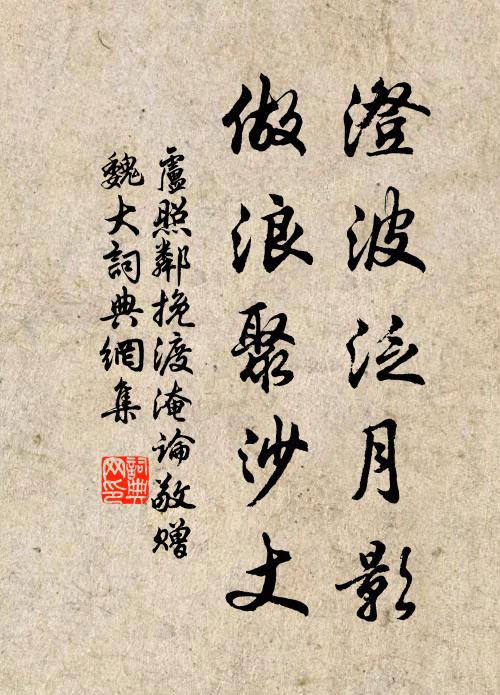 澄波泛月影
做浪聚沙丈
盧照鄰挽渡淹論敬贈
魏大詞典網集
詞典网印